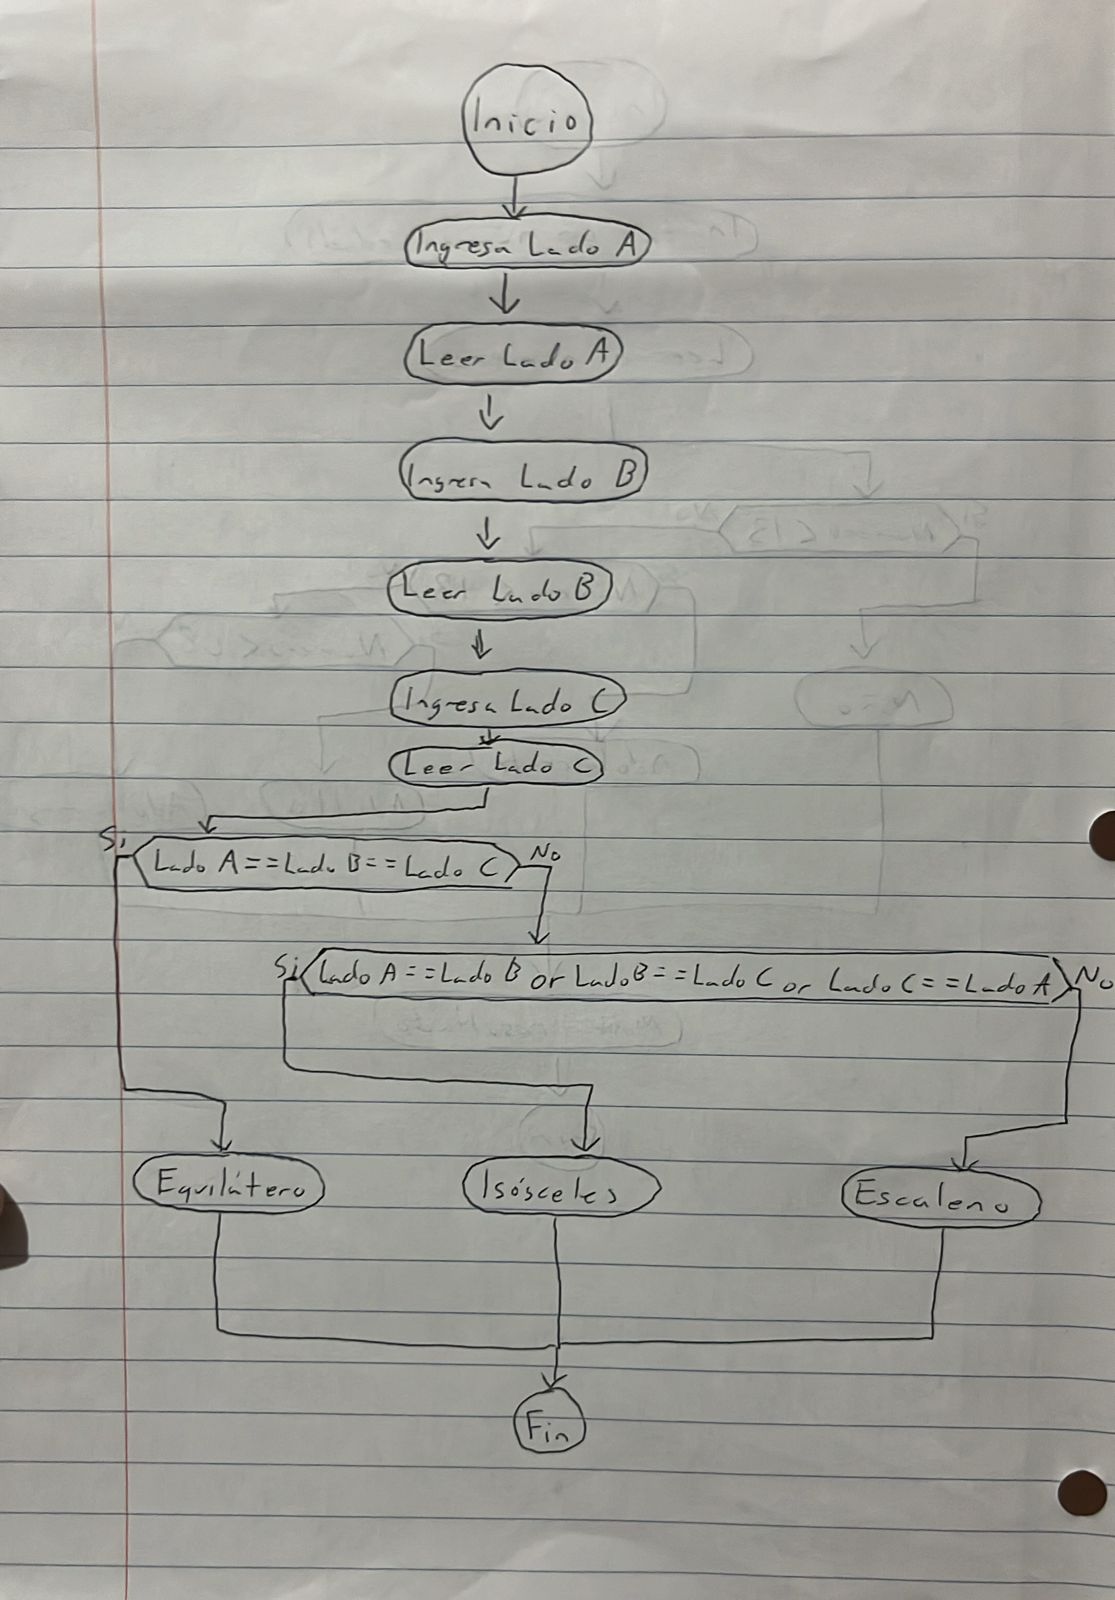 Inicio
Ingresa Lado A
Leer Lado A
Ingresa Lado B
Leer Lado B
Ingresa Lado C
Leer Lado C
Si
Lado A == Lado B == Lado C
No
Si
Lado A == Lado B or Lado B == Lado C or Lado C == Lado A
No
Equilátero
Isósceles
Escaleno
Fin